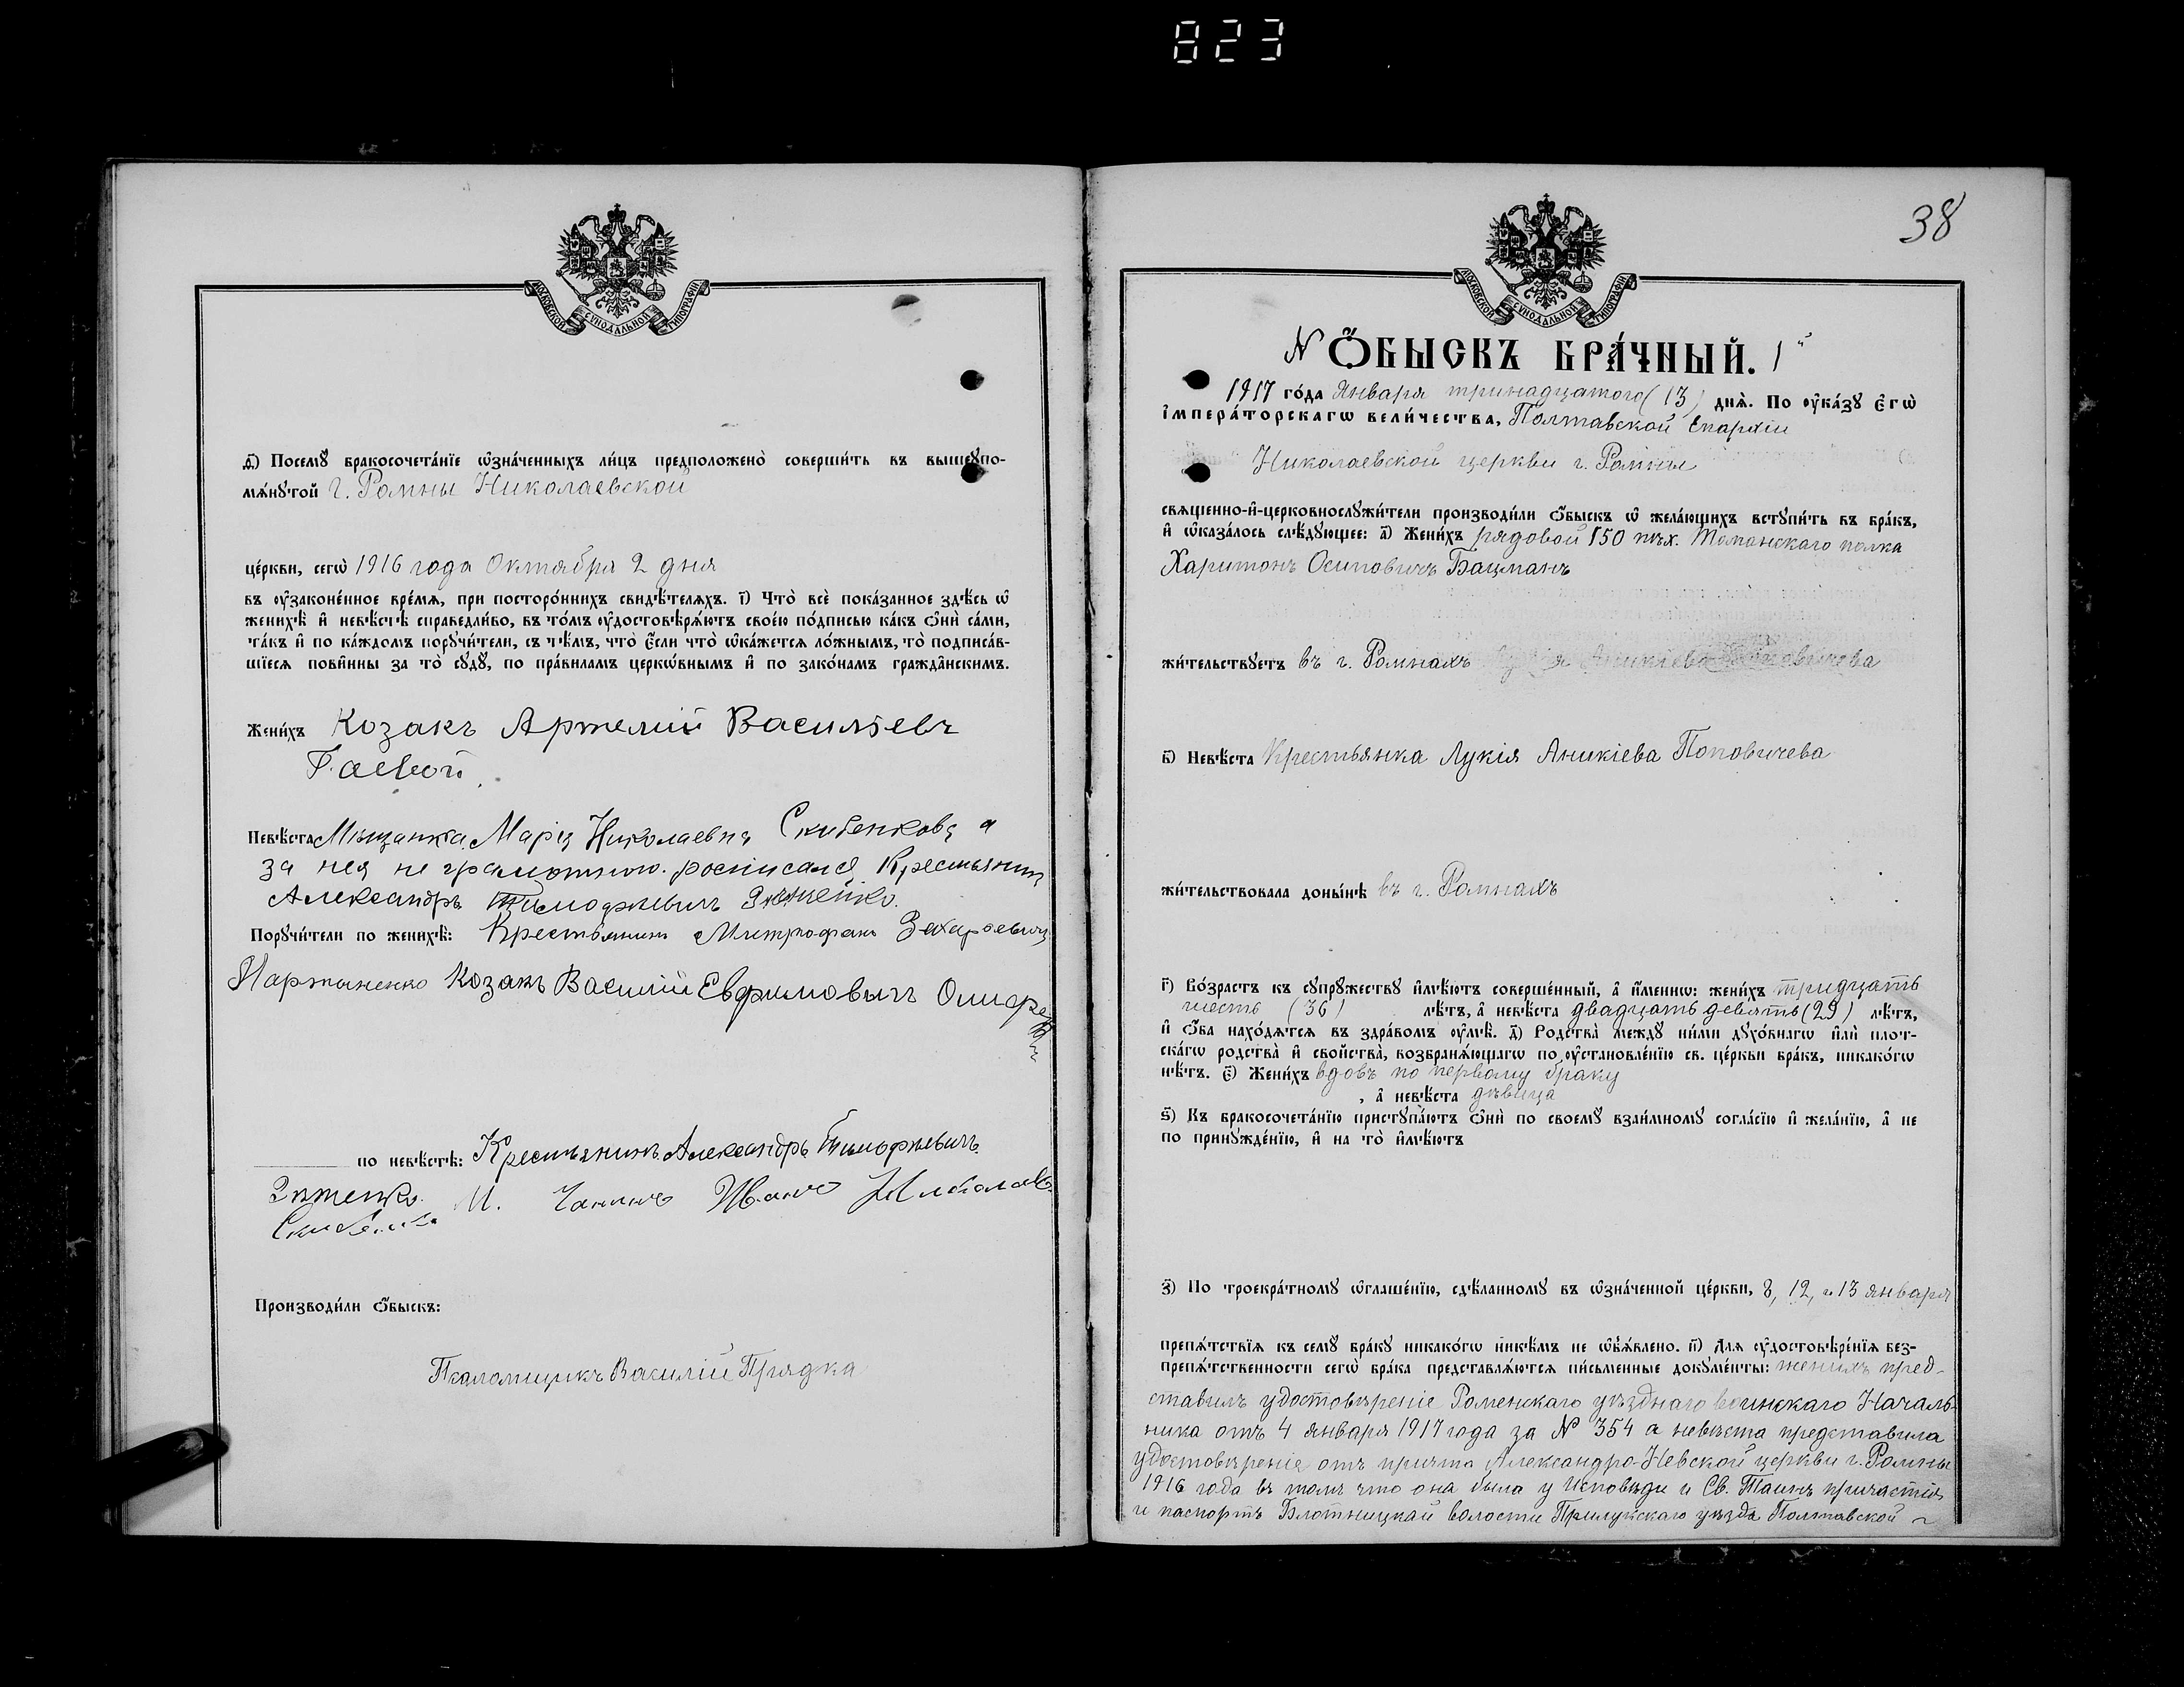 823
МОСКОВСКОЙ СУНОДАЛЬНОЙ ТИПОГРАФІИ
ѳ҃) Посемꙋ̀ бракосочета́нїе ѡ҆зна́ченныхъ ли́цъ предположено̀ соверши́ть въ вышеꙋпо-
мѧ́нꙋтой г. Ромны Николаевской
це́ркви, сегѡ̀ 1916 года Октября 2 дня
въ ᲂу҆законе́нное вре́мѧ, при посторо́ннихъ свидѣ́телѧхъ. і҃) Что̀ всѐ пока́занное здѣ́сь ѡ҆
женихѣ̀ и҆ невѣ́стѣ справедли́во, въ то́мъ ᲂу҆достовѣрѧ́ютъ свое́ю по́дписью ка́къ ѻ҆нѝ са́ми,
та́къ и҆ по ка́ждомъ порꙋчи́тели, съ тѣ́мъ, что̀ є҆́сли что̀ ѡ҆ка́жется ло́жнымъ, то̀ подписа́в-
шїеся пови́нны за то̀ сꙋдꙋ̀, по пра́виламъ церкѡ́внымъ и҆ по зако́намъ гражда́нскимъ.
Жени́хъ Козакъ Артемій Васильевъ
Гаевой
Невѣ́ста Мѣщанка Марія Николаевна Скибенкова а
за нея не грамотную росписался Крестьянинъ
Александръ Тимофѣевичъ
Порꙋчи́тели по женихѣ̀: Крестьянинъ Митрофанъ Захарьевичъ
Мартыненко Козакъ Василий Евфимовичъ
по невѣ́стѣ: Крестьянинъ Александръ Тимофѣевичъ
Иванъ
Производи́ли ѻ҆́быскъ:
Псаломщикъ Василій Прядка
38
МОСКОВСКОЙ СУНОДАЛЬНОЙ ТИПОГРАФІИ
N Ѻ҆́БЫСКЪ БРА́ЧНЫЙ. 1й
1917 го́да Января тринадцатаго (13) днѧ̀. По ᲂу҆ка́зꙋ Є҆гѡ̀
і҆мпера́торскагѡ вели́чества, Полтавской Епархіи
Николаевской церкви г. Ромны
свѧще́нно-и҆-церковнослꙋжи́тели производи́ли ѻ҆́быскъ ѡ҆ жела́ющихъ встꙋпи́ть въ бра́къ,
и҆ ѡ҆каза́лось слѣ́дꙋющее: а҃) Жени́хъ рядовой 150 пѣх. Таманскаго полка
Харитонъ Осиповичъ Бацманъ
жи́тельствꙋетъ въ г. Ромнахъ
в҃) Невѣ́ста Крестьянка Лукія Аникіева Поповичева
жи́тельствовала доны́нѣ въ г. Ромнахъ
г҃) Во́зрастъ къ сꙋпрꙋ́жествꙋ и҆мѣ́ютъ соверше́нный, а҆ и҆́меннѡ: жени́хъ тридцать
шесть (36) лѣ́тъ, а҆ невѣ́ста двадцать девять (29) лѣ́тъ,
и҆ ѻ҆́ба нахо́дятся въ здра́вомъ ᲂу҆мѣ̀. д҃) Родства̀ междꙋ̀ ни́ми дꙋхо́внагѡ и҆лѝ плот-
ска́гѡ родства̀ и҆ сво́йства̀, возбранѧ́ющагѡ по ᲂу҆становле́нїю св. це́ркви бра́къ, никако́гѡ
нѣ́тъ. є҃) Жени́хъ вдовъ по первому браку
, а҆ невѣ́ста дѣвица
ѕ҃) Къ бракосочета́нїю пристꙋпа́ютъ ѻ҆нѝ по своемꙋ̀ взаи́мномꙋ согла́сїю и҆ жела́нїю, а҆ не
по принꙋжде́нїю, и҆ на то̀ и҆мѣ́ютъ
з҃) По троекра́тномꙋ ѡ҆глаше́нїю, сдѣ́ланномꙋ въ ѡ҆зна́ченной це́ркви, 8, 12, и 13 января
препѧ́тствїя къ семꙋ̀ бра́кꙋ никако́гѡ никѣ́мъ не ѡ҆б̾ѧ́влено. и҃) Для ᲂу҆достовѣре́нїя без-
препѧ́тственности сегѡ̀ бра́ка представлѧ́ются пи́сьменные докꙋме́нты: женихъ пред-
ставилъ удостовѣреніе Роменскаго уѣзднаго воинскаго Началь-
ника отъ 4 января 1917 года за N 354 а невѣста представила
удостовѣреніе отъ причта Александро-Невской церкви г. Ромны
1916 года въ томъ что она была у Исповѣди и Св. Таинъ причастія
и паспортъ Блотницкой волости Прилукскаго уѣзда Полтавской